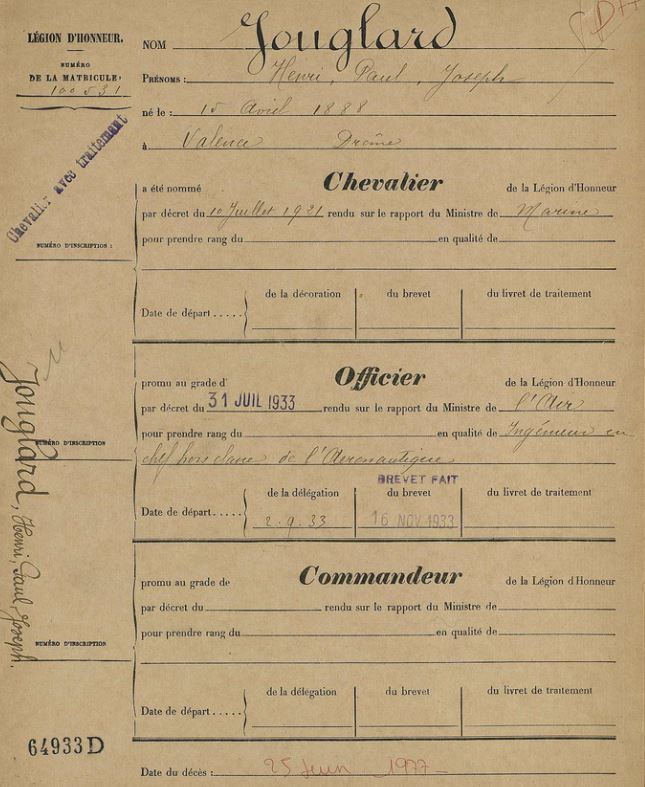 LÉGION D'HONNEUR.
NUMÉRO
DE LA MATRICULE:
100531
Chevalier avec traitement
NUMÉRO D'INSCRIPTION :
NOM Jouglard
PRÉNOMS : Henri, Paul, Joseph
né le : 15 Avril 1888
à Valence Drôme
a été nommé Chevalier de la Légion d'Honneur
par décret du 10 Juillet 1921 rendu sur le rapport du Ministre de Marine
pour prendre rang du en qualité de
de la décoration du brevet du livret de traitement
Date de départ.....
promu au grade d' Officier de la Légion d'Honneur
par décret du 31 JUIL 1933 rendu sur le rapport du Ministre de l'Air
pour prendre rang du en qualité de Ingénieur en
chef hors classe de l'Aéronautique
NUMÉRO D'INSCRIPTION
BREVET FAIT
de la délégation du brevet du livret de traitement
Date de départ..... 2.9.33 16 NOV 1933
Jouglard, Henri, Paul, Joseph.
promu au grade de Commandeur de la Légion d'Honneur
par décret du rendu sur le rapport du Ministre de
pour prendre rang du en qualité de
NUMÉRO D'INSCRIPTION
de la délégation du brevet du livret de traitement
Date de départ.....
64933 D
Date du décès : 25 Juin 1977